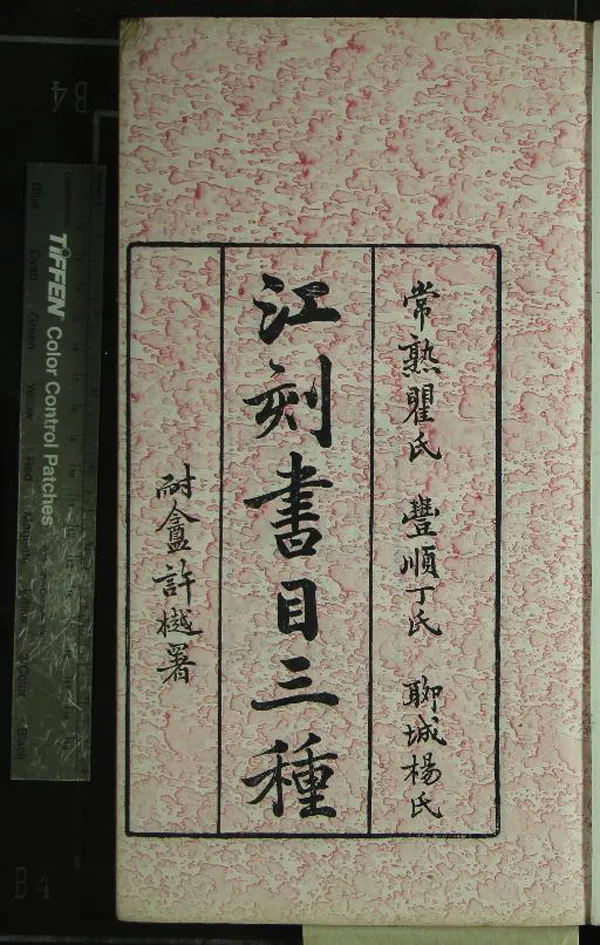 常熟瞿氏 豐順丁氏 聊城楊氏
江刻書目三種
耐盦許樾署
TIFFEN Color Control Patches
Blue
Cyan
Green
Yellow
Red
Magenta
Black
B4
B4